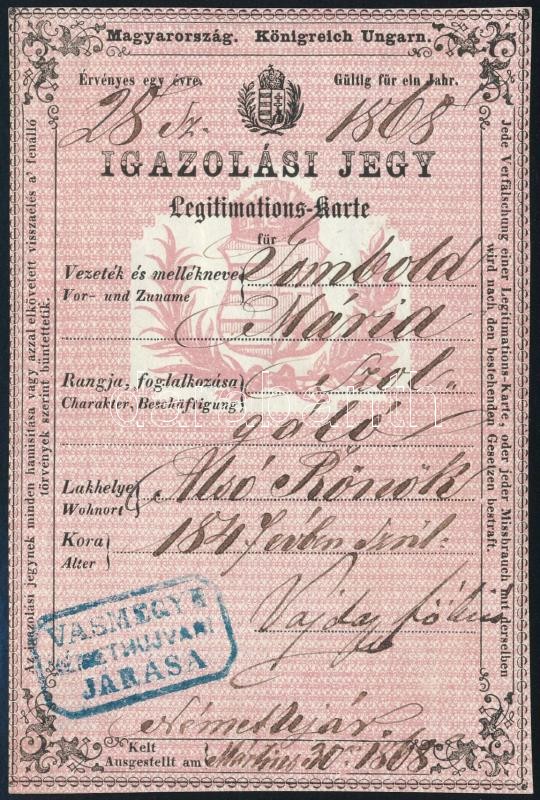 Magyarország. Königreich Ungarn.
Érvényes egy évre. Gültig für ein Jahr.
28 Sz. 1868
IGAZOLÁSI JEGY
Legitimations-Karte
für
Vezeték és mellékneve Tombold
Vor- und Zuname Mária
Rangja, foglalkozása Szol„
Charakter, Beschäftigung gáló
Lakhelye Alsó Rönök
Wohnort
Kora 1847 évben szül.
Alter
Vajda
VASMEGYE
NÉMETHUJVÁRI
JÁRÁSA
Németujvár
Kelt
Ausgestellt am Martius 30 1868
Az igazolási jegynek minden hamisítása vagy azzal elkövetett visszaélés a' fenálló
törvények szerint büntettetik.
Jede Verfälschung einer Legitimations-Karte, oder jeder Missbrauch mit derselben
wird nach den bestehenden Gesetzen bestraft.